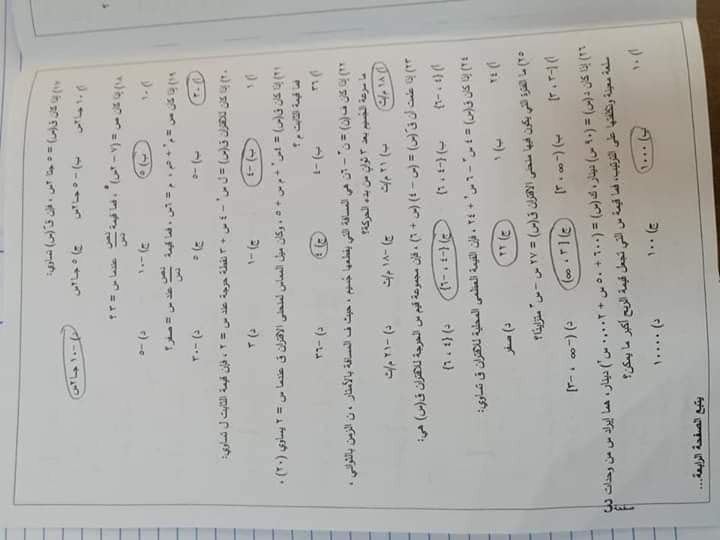 ١٧) إذا كان ق(س) = ٥ جتا٢س ، فإن قَ(س) تساوي:
أ) ١٠ جا٢س ب) -٥ جا٢س ج) ٥ جا٢س د) -١٠ جا٢س
١٨) إذا كان ص = (س٢ - ٧)٥ ، فما قيمة دص/دس عندما س = ٣ ؟
أ) ١٠ ب) ٥ ج) -١٠ د) -٥
١٩) إذا كان ص = م٢ + ٥م ، م = ٦س ، فما قيمة دص/دس عند س = صفر ؟
أ) ٣٠ ب) -٥ ج) ٥ د) -٣٠
٢٠) إذا كان للاقتران ق(س) = ل س٢ - ٤ س + ٣ نقطة حرجة عند س = ٢ ، فإن قيمة الثابت ل تساوي:
أ) ١ ب) -٤ ج) -١ د) ٢
٢١) إذا كان ق(س) = ٤س٢ + م س + ٥ ، وكان ميل المماس لمنحنى الاقتران ق عندما س = ٢ يساوي (٢٠) ،
فما قيمة الثابت م ؟
أ) ٣٦ ب) -٤ ج) ٤ د) -٣٦
٢٢) إذا كان ف(ن) = ن٣ - ٦ن هي المسافة التي يقطعها جسيم ، حيث ف المسافة بالأمتار ، ن الزمن بالثواني ،
ما سرعة الجسيم بعد ٣ ثوانٍ من بدء الحركة؟
أ) ١٨ م/ث ب) ٢١ م/ث ج) -١٨ م/ث د) -٢١ م/ث
٢٣) إذا علمت أن قَ(س) = (س - ٤) (س + ٦) ، فإن مجموعة قيم س الحرجة للاقتران ق(س) هي:
أ) {٤ ، -٦} ب) {-٤ ، ٦} ج) {-٤ ، -٦} د) {٤ ، ٦}
٢٤) إذا كان ق(س) = ٤ س٣ - ٦ س٢ + ٢٤ ، فإن القيمة العظمى المحلية للاقتران ق تساوي:
أ) ٢٤ ب) ١ ج) ٢٢ د) صفر
٢٥) ما الفترة التي يكون فيها منحنى الاقتران ق(س) = ٢٧ س - س٣ متزايداً؟
أ) [-٣ ، ٣] ب) (-∞ ، ٣] ج) [٣ ، ∞) د) (-∞ ، -٣]
٢٦) إذا كان د(س) = (٩٠ س) دينار ، ك(س) = (٦٠٠ + ٥٠ س + ٠,٠٠٢ س٢) دينار ، هما إيراد س من وحدات
سلعة معينة وتكلفتها على الترتيب، فما قيمة س التي تجعل قيمة الربح أكبر ما يمكن؟
أ) ١٠ ب) ١٠٠٠ ج) ١٠٠ د) ١٠٠٠٠
يتبع الصفحة الرابعة...